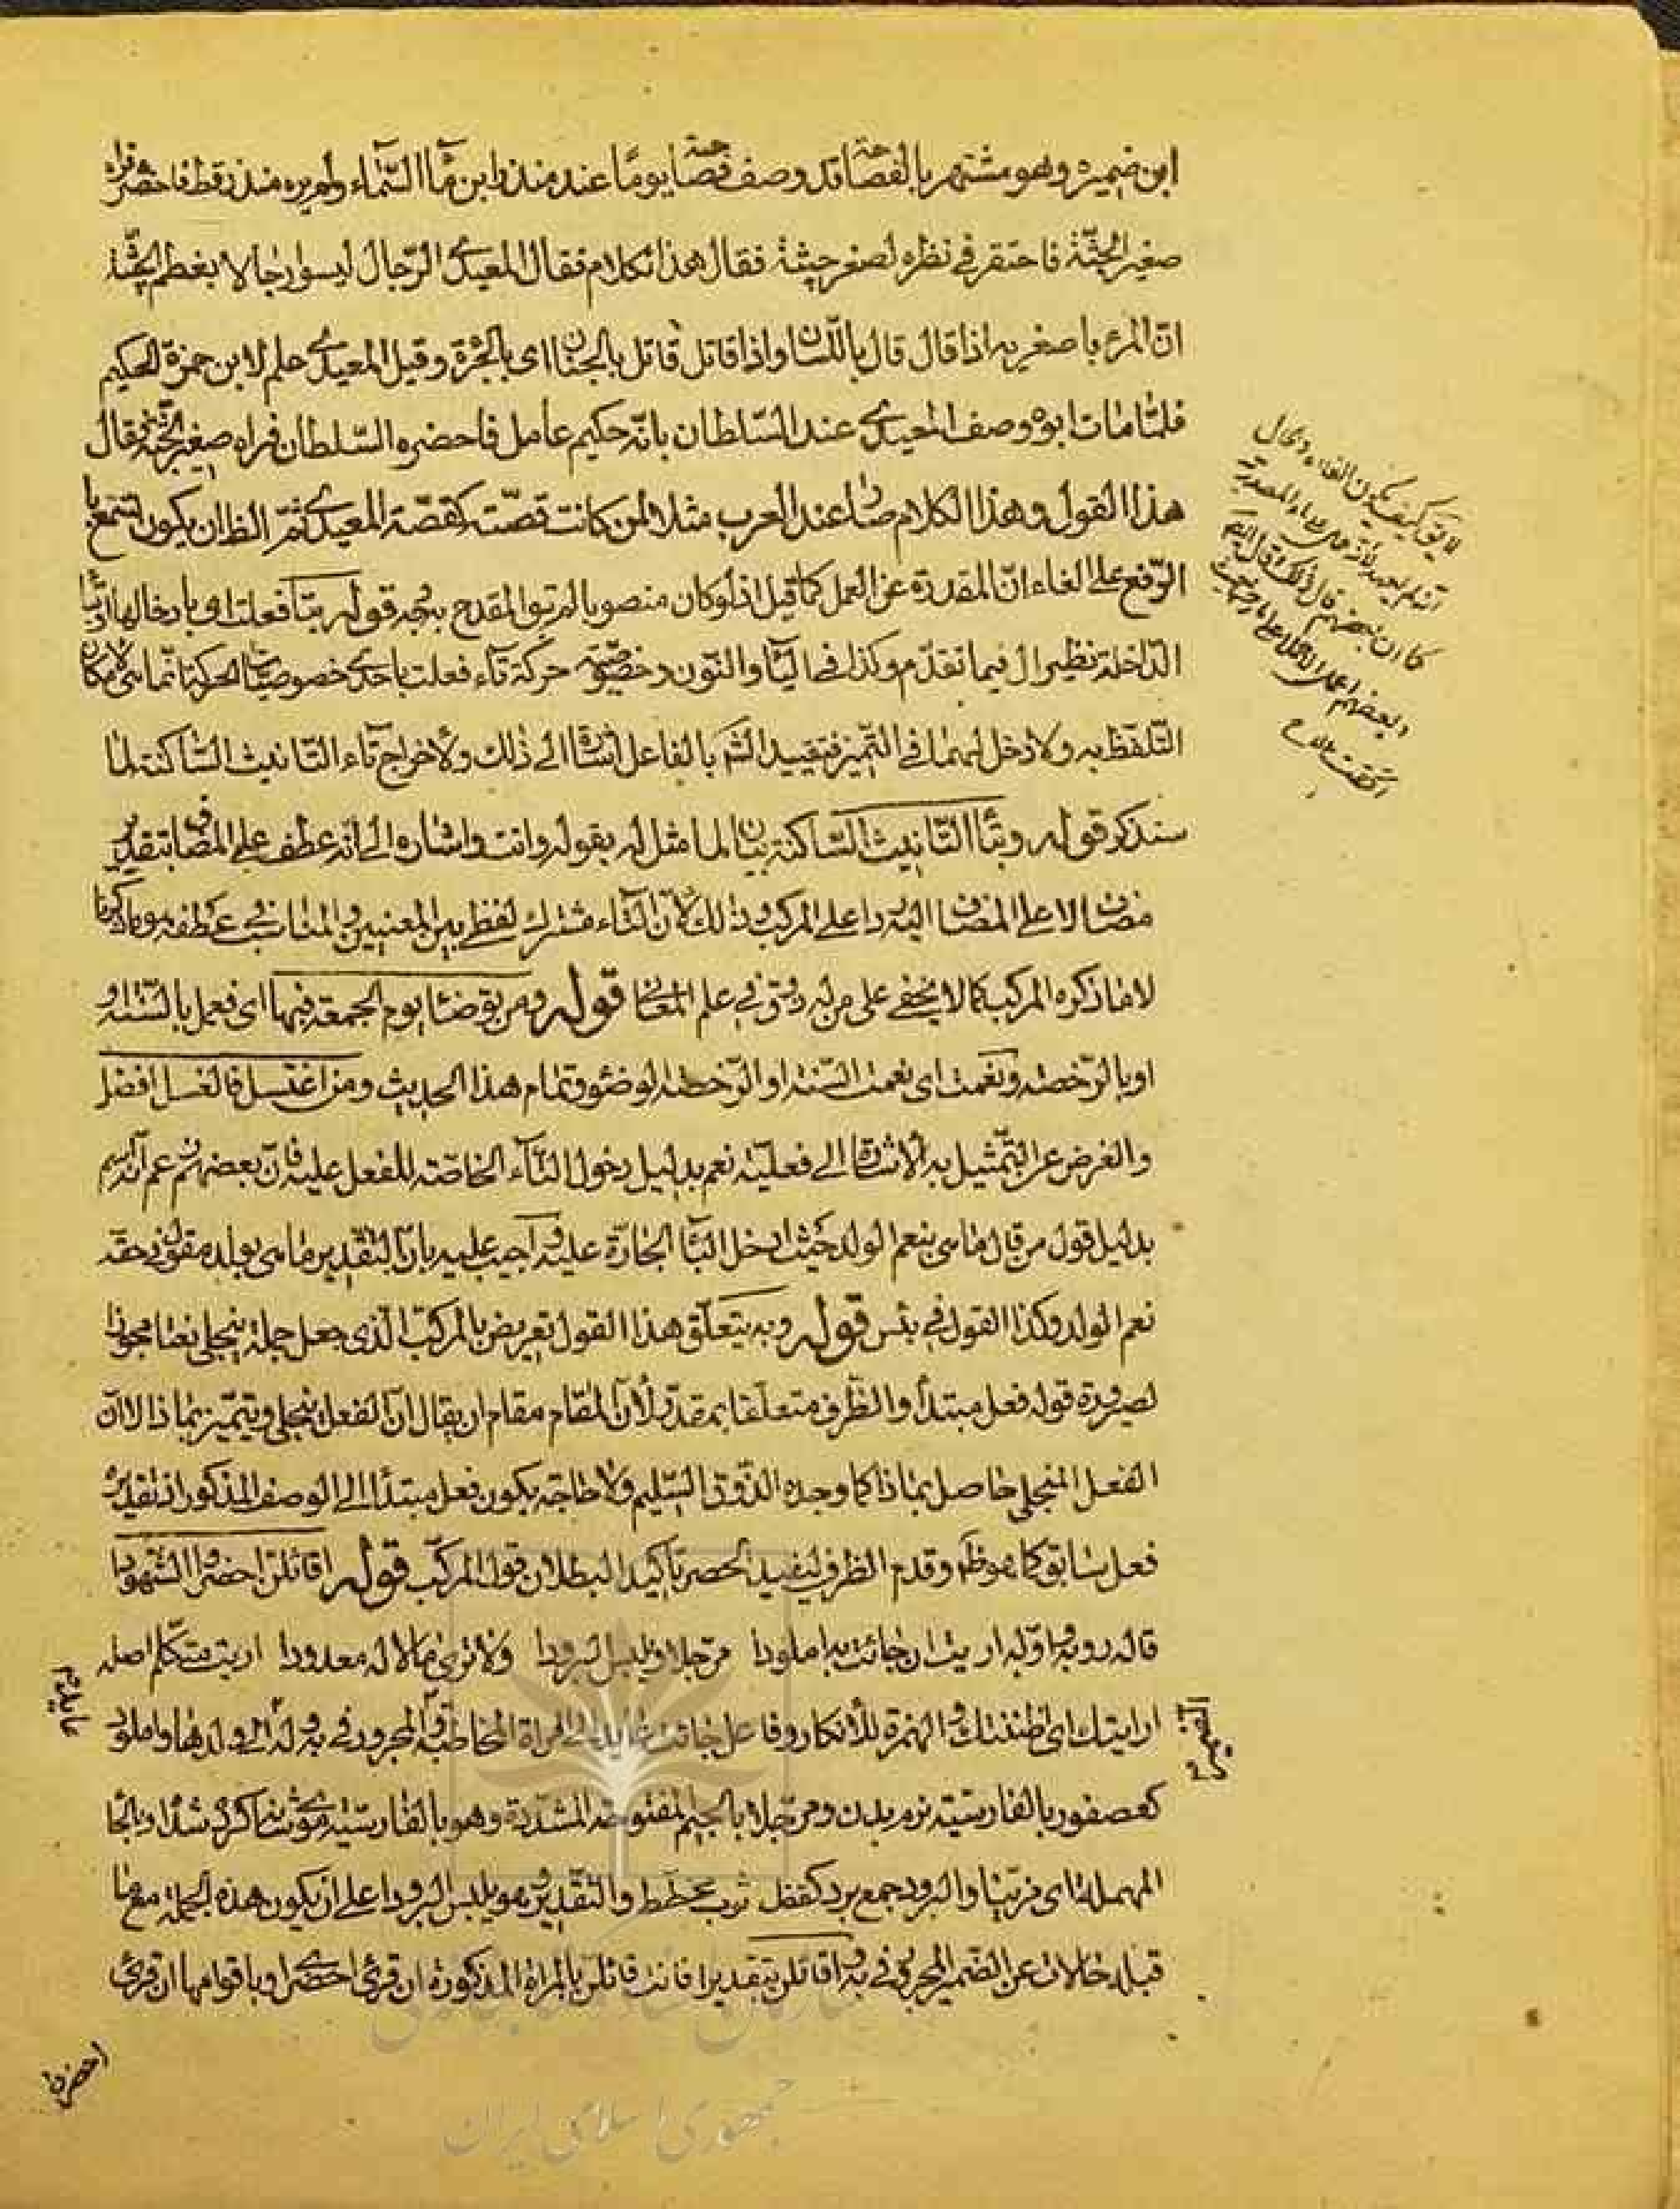 ابن ضميره وهو مشتهر بالفصاحة قد وصف فصاحة يومًا عند منذر ابن مآ السّمآء ولم يره منذر قط فاحضر فراه
صغير الجثّة فاحتقر في نظره لصغر جثته فقال هذا الكلام فقال المعيدى الرّجال ليسوا رجالا بعظم الجثّة
انّ المرء باصغريه اذا قال قال باللّسان واذا قاتل قاتل بالجنان اى بالجرءة وقيل المعيدى علم لابن حمزة الحكيم
فلمّا مات ابوه وصف المعيدى عند السّلطان بانّه حكيم عامل فاحضره السّلطان فراه صغير الجثّة فقال
هذا القول وهذا الكلام صار عند العرب مثلا لمن كانت قصّته كقصّة المعيدى ثمّ الظ ان يكون تسمع با
الرّفع على الغاء انّ المقدرة عن العمل كما قيل اذ لو كان منصوبا لم يرتق المقدح بوجه قوله بتا فعلت اى بادخالها
الدّاخلة نظير ال فيما تقدّم وكذا في اليّا والنّون وخصوصيّة حركة تآء فعلت باحدى خصوصيّات الحركة انّما هى لامكان
التّلفّظ به ولا دخل لهما في التّميز فتقييد الشّم بالفاعل اشارة الى ذلك ولأخراج تآء التّانيث السّاكنة لما
سنذكر قوله وبتأ التّانيث السّاكنة بيان لما مثل له بقوله وانت واشاره الى انّه عطف على المضاف بتقدير
مضاف لا على المضاف اليه ردا على المركب وذلك لانّ التّاء مشترك لفظى بين المعنيين والمناسب عطفه هو ما ذكرنا
لا ما ذكره المركب كما لا يخفى على من له ذوق في علم المعانى قوله ومن توضّأ يوم الجمعة فبها اى فعمل بالسّنّة و
او بالرّخصة ونعمت اى نعمت السّنّة او الرّخصة الوضوء وتمام هذا الحديث ومن اغتسل فالغسل افضل
والغرض عن التّمثيل به الأشارة الى فعليّة نعم بدليل دخول التّآء الخاصّة للفعل عليه فانّ بعضهم زعم انّه اسم
بدليل قول من قال ما هى بنعم الولد حيث ادخل البّأ الجارّة عليه واجيب عليه بانّ التّقدير ما هى بولد مقول في حقّه
نعم الولد وكذا القول في بئس قوله وبه يتعلّق هذا القول تعريض بالمركّب الّذى جعل جملة ينجلى نعتا مجوزا
لصيرورة قوله فعل مبتدأ والظّرف متعلّقا بمقدّر لأنّ المقام مقام ان يقال انّ الفعل ينجلى ويتميّز بماذا لا انّ
الفعل المنجلى حاصل بماذا كما وجده الذّوق السّليم ولا حاجة بكون فعل مبتدأ الى الوصف المذكور اذ تقديره
فعل سابق كما هو ظ وقدم الظرف ليفيد الحصر تأكيدا لبطلان قول المركّب قوله اقائلنّ احضروا الشّهودا
قاله روبة واوّله اريت ان جائت به املودا مرجّلا ويلبس البرودا ولا ترى مالا له معدودا اريت متكلّم اصله
ارايتك اى ظننتك والهمزة للأنكار وفاعل جائت عايد الى المراة المخاطبة والمجرور في به وله الى ولدها واملود
كعصفور بالفارسيّة نرم بدن ومرجّلا بالجيم المفتوحة المشدّدة وهو بالفارسيّة موى شانه كرده شده وبالحا
المهملة اى مزيّنا والبرود جمع برد كقفل ثوب مخطّط والتقدير وهو يلبس البرودا على ان يكون هذه الجملة مع ما
قبله حالان عن الضّمير المجرور في به واقائلنّ بتقدير افانت قائلنّ بالمراة المذكورة ان قرئ احضرى وباقوامها ان قرئ
احضروا